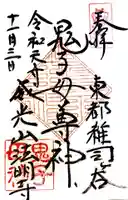 奉拝
東都雑司谷
鬼子母尊神
令和元年
十一月三日
威光山法明寺